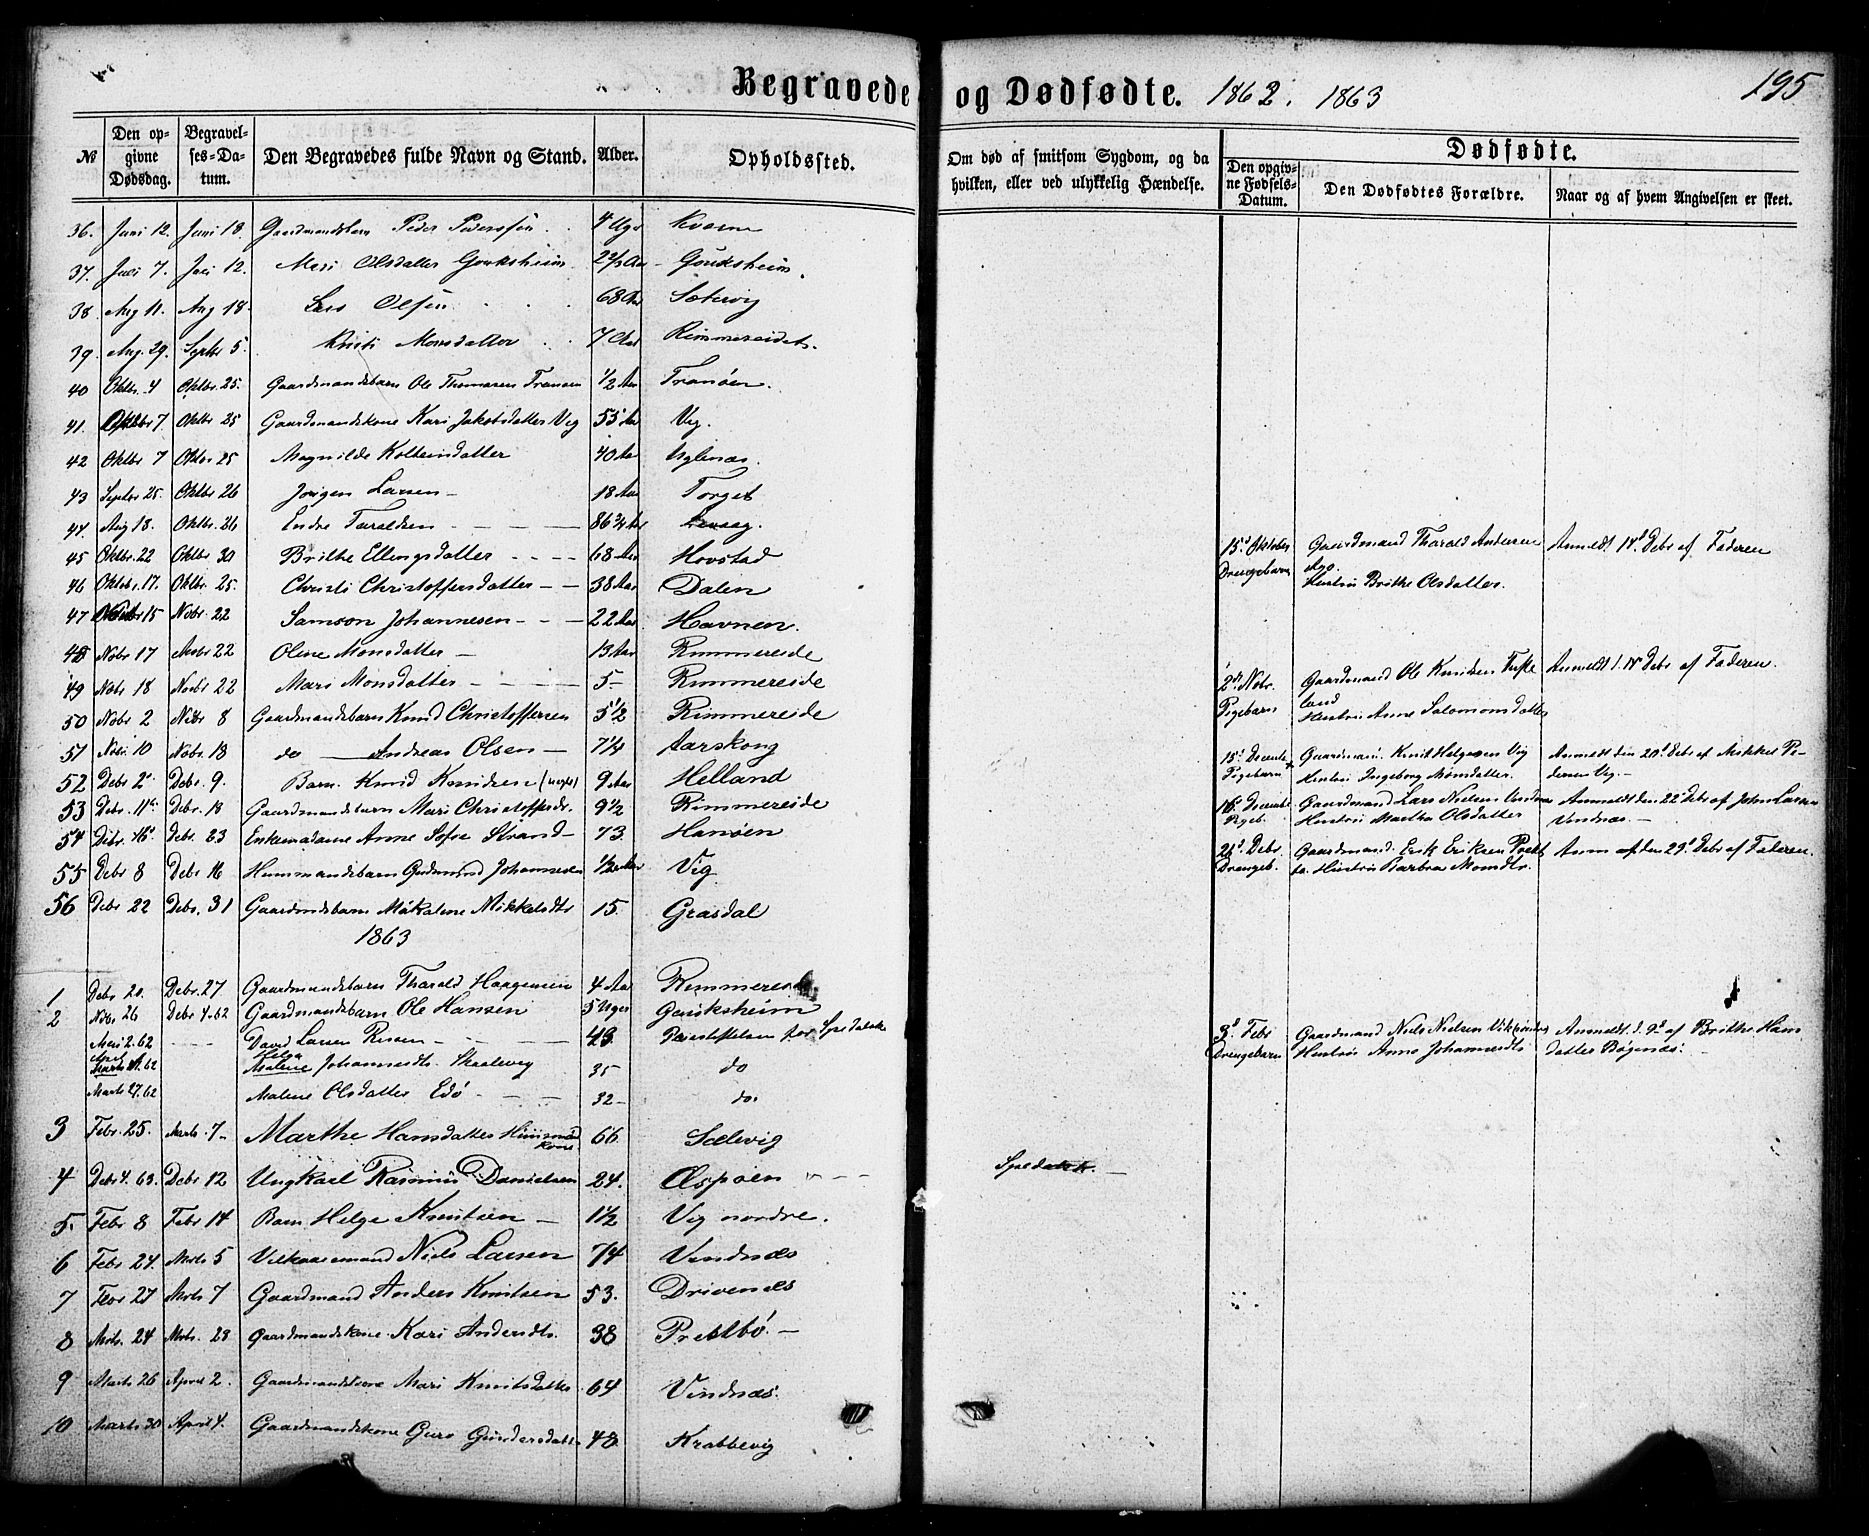 Begravede og Dødfødte. 1862. 1863 195
№ Den opgivne Dødsdag. Begravelses-Datum. Den Begravedes fulde Navn og Stand. Alder. Opholdssted. Om død af smitsom Sygdom, og da hvilken, eller ved ulykkelig Hændelse. Den opgivne Fødsels-Datum. Dødfødte. Den Dødfødtes Forældre. Naar og af hvem Angivelsen er skeet.
36. Juni 12. Juni 18. Gaardmandsbarn Peder Pedersøn 4 Uger Kverne
37. Juli 7. Juli 12. Mari Olsdatter Gouksheim 2 2/3 Aar Gouksheim.
38. Aug 11. Aug 18. Lars Olsen 68 Aar Sætervig
39. Aug. 29. Septbr 5. Kristi Monsdatter 7 Aar Rimmereidet.
40 Oktbr. 4 Oktbr. 25. Gaardmandsbarn Ole Thomasen Tranøen 1/2 Aar Tranøen.
41. Oktbr 7 Oktbr 25 Gaardmandskone Kari Jakobsdatter Vig 55 Aar Vig.
42 Oktbr 7 Oktbr 25 Magnilde Kolbeinsdatter 40 Aar Uglenæs.
43 Septbr 25. Oktbr 26 Jørgen Larsen 18 Aar Torget
44. Aug 18. Oktbr. 26 Endre Taraldsen 86 3/4 Aar
45 Oktbr. 22 Oktbr 30 Brithe Ellingsdatter 68 Aar Hovstad
46 Oktob. 17. Oktbr. 25. Christi Christoffersdatter 38 Aar Dalen
47 Nobr 15 Nobr. 22 Samson Johannesen 22 Aar Havnen.
48 Nobr 17 Nobr 22 Oline Monsdatter 13 Aar Rimmereide
49 Nobr 18 Novbr 22 Mari Monsdatter 5 Rimmereide
50 Nobr 2 Nobr 8 Gaardmandsbarn Knud Christoffersen 5 1/2 Rimmereide
51 Nobr 10 Nobr. 18 do Andreas Olsen 7 1/4 Aarskoug
52 Debr 2. Debr. 9. Barn Knud Knudsen 9 Aar Helland
53 Debr. 11. Debr. 18 Gaardmandsbarn Mari Christoffersdr. 9 1/2 Rimmereide
54 Debr. 16. Debr. 23 Enkemadame Anne Sofie Strand 73. Hanøen
55 Debr 8 Debr 16 Husmandsbarn Gudmund Johannesen 1/2 Aar Vig
56 Debr 22 Debr. 31 Gaardmdsbarn Mikaline Mikkelsdtr 15. Grasdal
1863
1 Debr 20. Debr. 27 Gaardmandsbarn Tharald Haagensen 4 Aar Rimmereide
2 Nobr 26 Debr 4.62 Gaardmandsbarn Ole Hansen 5 Uger Gouksheim
Mai 2.62 David Larsen 43. Pleiestiftelsen for Spedalske
April Marts 1.62 Helga Malene Johannesdtr. Skaalevig 35 do
Marts 27.62 Malene Olsdatter Edø 32 do.
3 Febr. 25. Marts. 7 Marthe Hansdatter Husmdkone 66 Sælevig
4 Debr 4. 63. Debr 12 Ungkarl Rasmus Danielsen 24. Æspøen Spedalsk.
5. Febr 8 Febr 14 Barn Helge Knutsen 1 1/2 Vig nordre.
6 Febr 24. Mrts 5 Vilkaarsmand Niels Larsen 74 Vindnæs
7 Febr 27 Mrts 7 Gaardmand Anders Knutsen 53. Drivenes
8 Mrts. 24 Mrts. 23 Gaardmandskone Kari Andersdtr. 38 Prestbø.
9 Marts 26 April 2. Gaardmandskone Mari Knutsdatter 64 Vindnæs.
10 Marts 30 April 4. Gaardmandskone Guro Gundersdatter 48 Krabbevig
15. Oktober Drengebarn Gaardmand Tharald Andersen Hustru Brithe Olsdatter. Anmeldt 14. Debr af Faderen
2. Nobr. Pigebarn Gaardmand Ole Knudsen Huskeland Hustru Anne Salomonsdatter Anmeldt 14. Debr af Faderen.
15. Decembr Pigebarn Gaardmand. Knut Helgesen Vig Hustru Ingeborg Monsdatter. Anmeldt den 20. Debr af Mikkel Pedersen Vig.
16. Decembr Pigeb. Gaardmand Lars Nielsen Vindnæs Hustru Martha Olsdatter Anmeldt den 22 Debr af John Larsen Vindnæs.
21. Debr. Drengeb. Gaardmand. Erik Eriksen Hustru Barbra Monsdtr. Anm af den 29. Debr af Faderen.
3. Febr Drengebarn Gaardmand Niels Nielsen Hustru Anne Johannesdtr Anmeldt d. 9. af Brithe Hansdatter Bøgenæs.